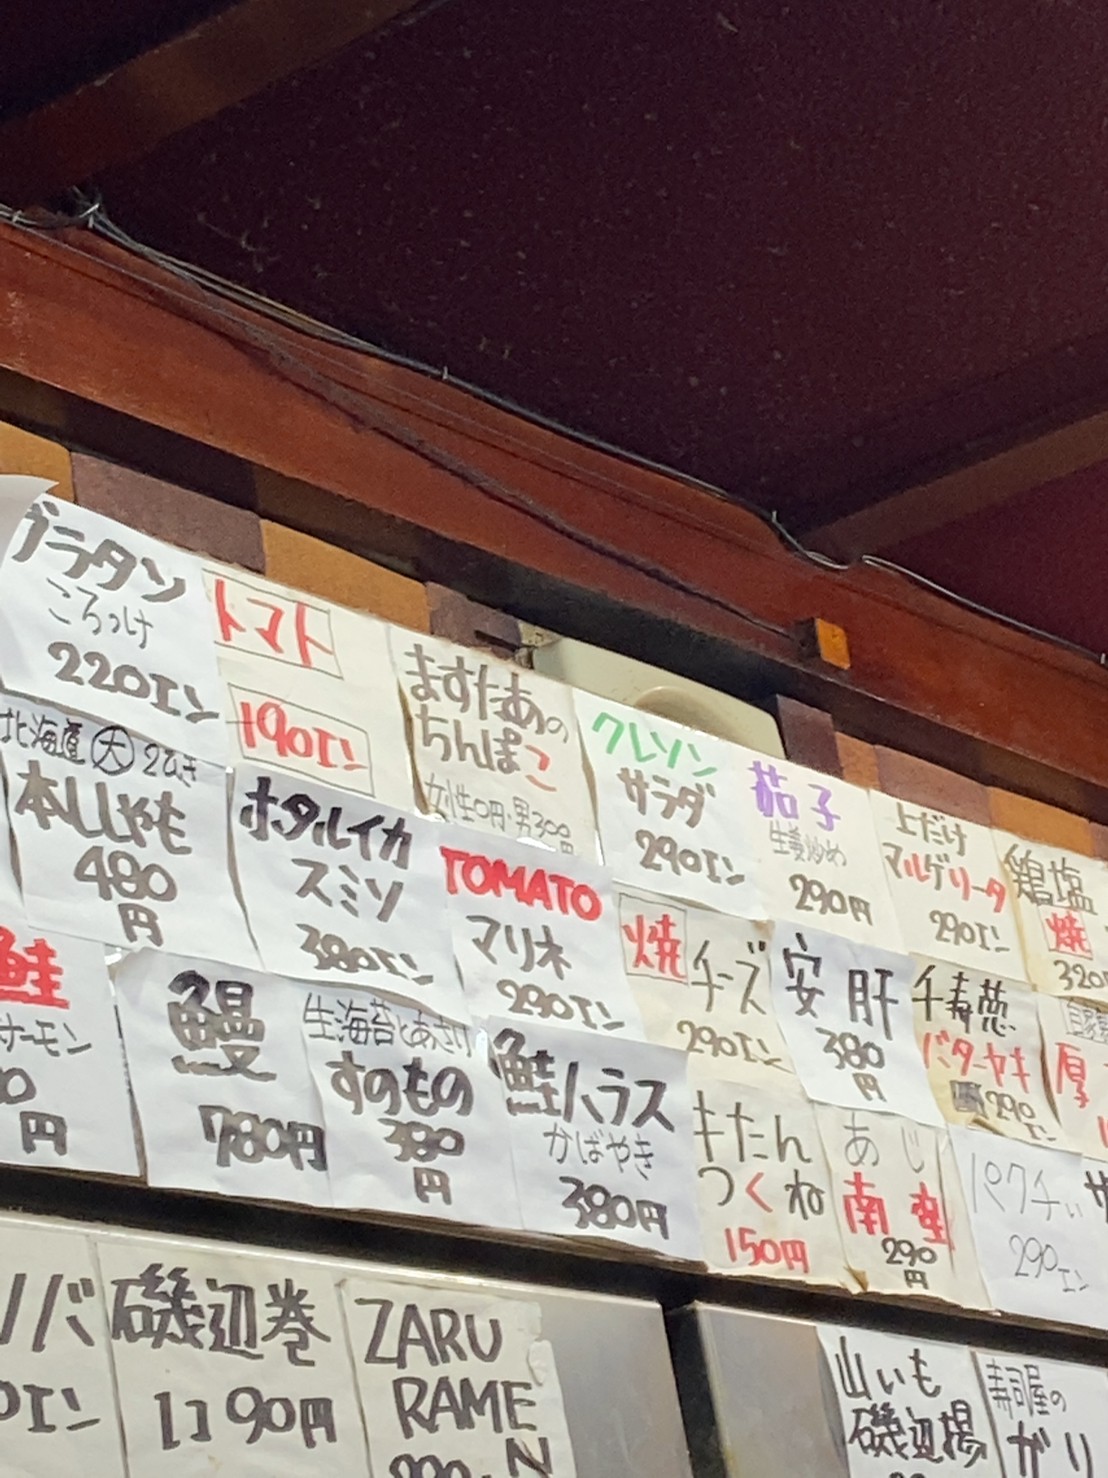 グラタン
ころっけ
220エン
トマト
190エン
ますたあの
ちんぽこ
女性0円・男300
円
クレソン
サラダ
290エン
茄子
生姜炒め
290円
上だけ
マルゲリータ
290エン
鶏塩
焼
320
北海道大2ひき
本ししゃも
480
円
ホタルイカ
スミソ
380エン
TOMATO
マリネ
290エン
焼チーズ
290エン
安肝
380
円
千寿葱
バターヤキ
290
エン
自家製
厚
鮭
サーモン
0
円
鰻
780円
生海苔とあさり
すのもの
380
円
鮭ハラス
かばやき
380円
キたん
つくね
150円
あじ
南蛮
290
円
パクチぃ
290エン
サ
バ
0エン
磯辺巻
1コ90円
ZARU
RAME
N
山いも
磯辺揚
寿司屋の
ガリ